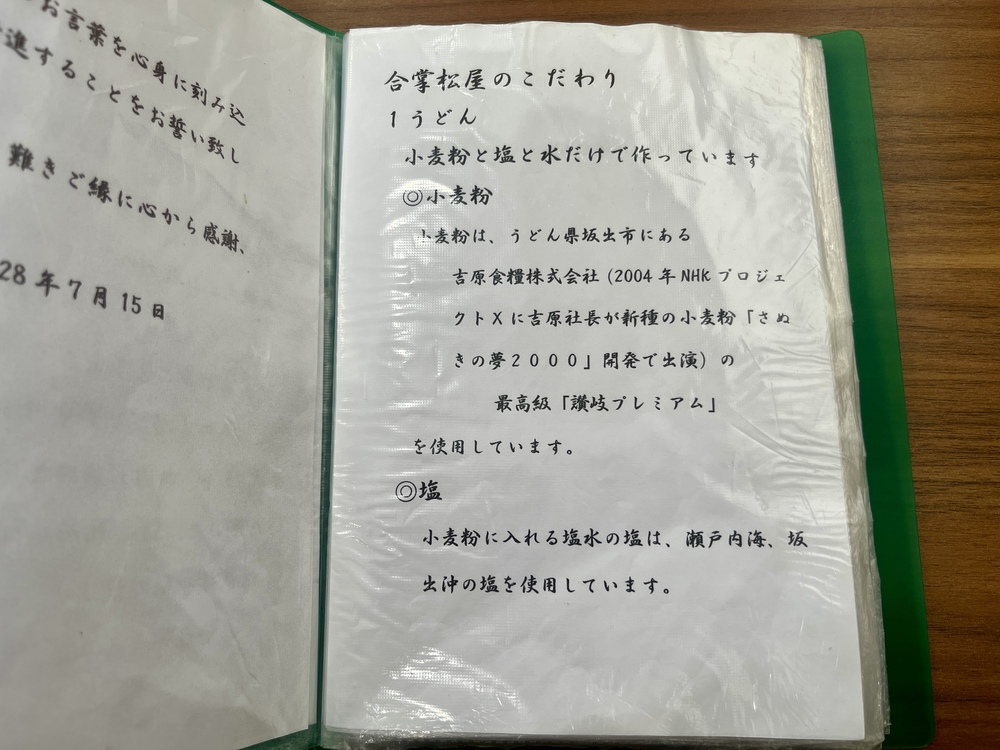 お言葉を心身に刻み込
進することをお誓い致し
難きご縁に心から感謝、
28年7月15日
合掌松屋のこだわり
1うどん
小麦粉と塩と水だけで作っています
◎小麦粉
小麦粉は、うどん県坂出市にある
吉原食糧株式会社(2004年NHKプロジェ
クトXに吉原社長が新種の小麦粉「さぬ
きの夢2000」開発で出演)の
最高級「讃岐プレミアム」
を使用しています。
◎塩
小麦粉に入れる塩水の塩は、瀬戸内海、坂
出沖の塩を使用しています。